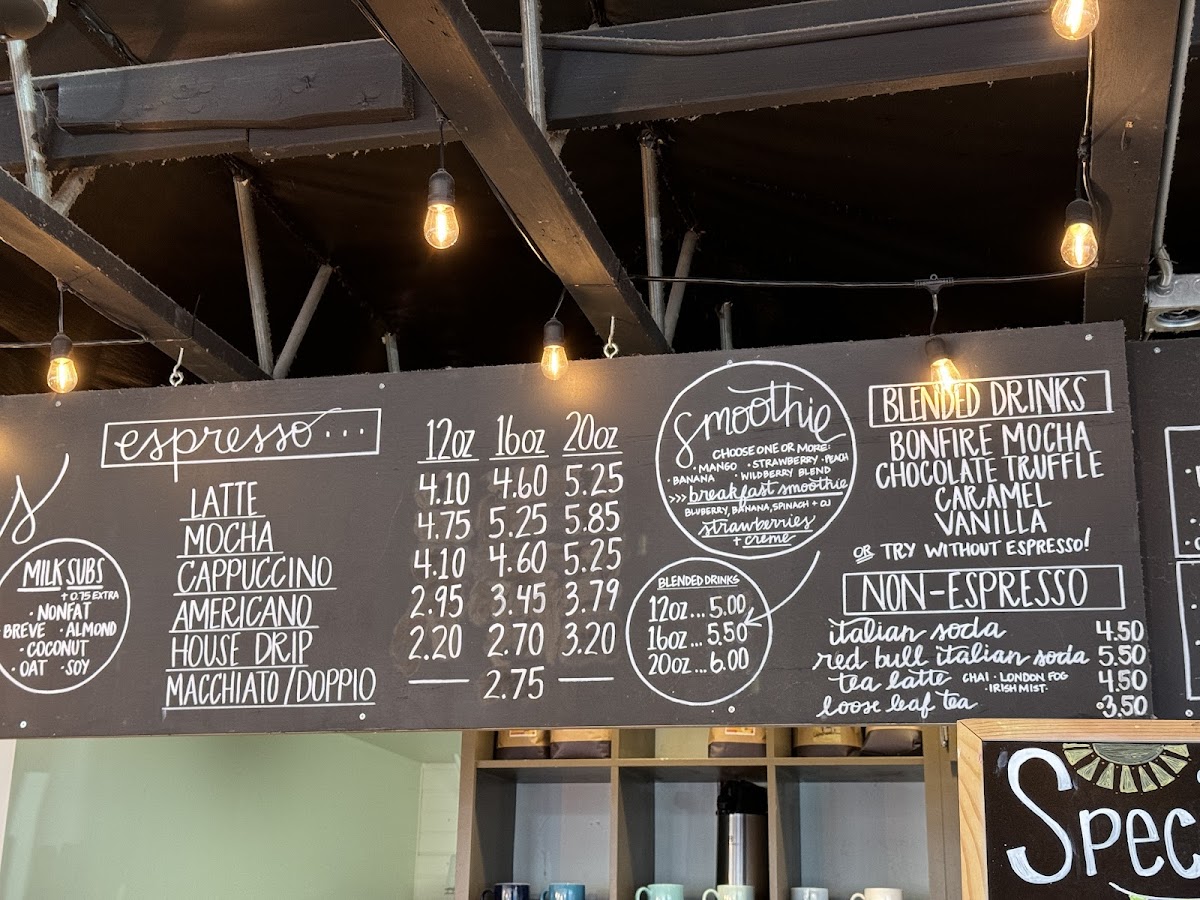 espresso...
12oz 16oz 20oz
LATTE 4.10 4.60 5.25
MOCHA 4.75 5.25 5.85
CAPPUCCINO 4.10 4.60 5.25
AMERICANO 2.95 3.45 3.79
HOUSE DRIP 2.20 2.70 3.20
MACCHIATO/DOPPIO — 2.75 —
MILK SUBS
+ 0.75 EXTRA
· NONFAT
BREVE · ALMOND
· COCONUT
· OAT · SOY
smoothie
CHOOSE ONE OR MORE:
· MANGO · STRAWBERRY · PEACH
· BANANA · WILDBERRY BLEND
>>> breakfast smoothie
BLUBERRY, BANANA, SPINACH + OJ
strawberries
+ creme
BLENDED DRINKS
12oz... 5.00
16oz... 5.50
20oz... 6.00
BLENDED DRINKS
BONFIRE MOCHA
CHOCOLATE TRUFFLE
CARAMEL
VANILLA
OR TRY WITHOUT ESPRESSO!
NON-ESPRESSO
italian soda 4.50
red bull italian soda 5.50
tea latte CHAI · LONDON FOG 4.50
· IRISH MIST ·
loose leaf tea 3.50
Spec